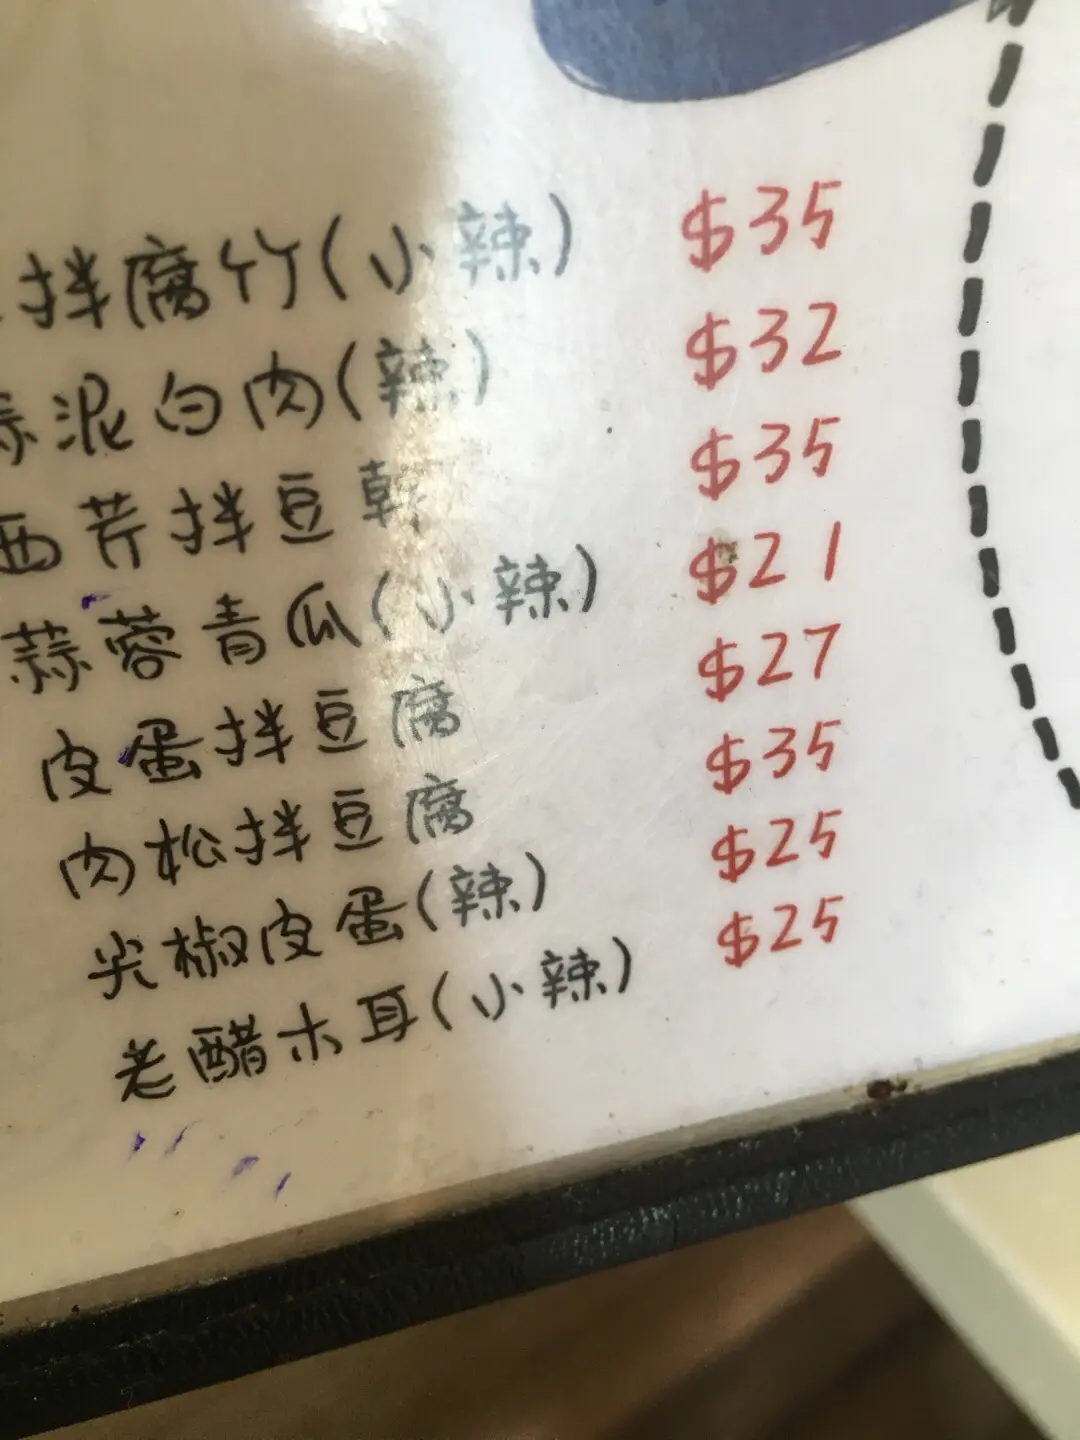 拌腐竹(小辣) $35
蒜泥白肉(辣) $32
西芹拌豆乾 $35
蒜蓉青瓜(小辣) $21
皮蛋拌豆腐 $27
肉松拌豆腐 $35
尖椒皮蛋(辣) $25
老醋木耳(小辣) $25